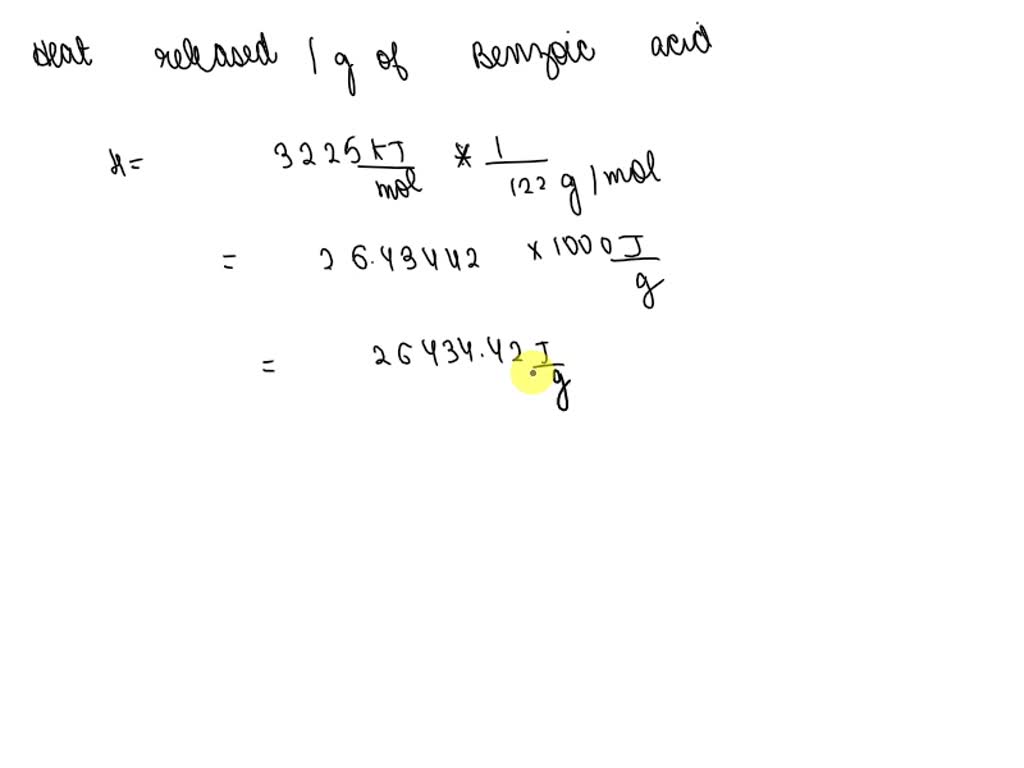 Heat released 1 g of Benzoic acid
H= 3225 kJ/mol * 1/122 g/mol
= 26.43442 × 1000 J/g
= 26434.42 J/g